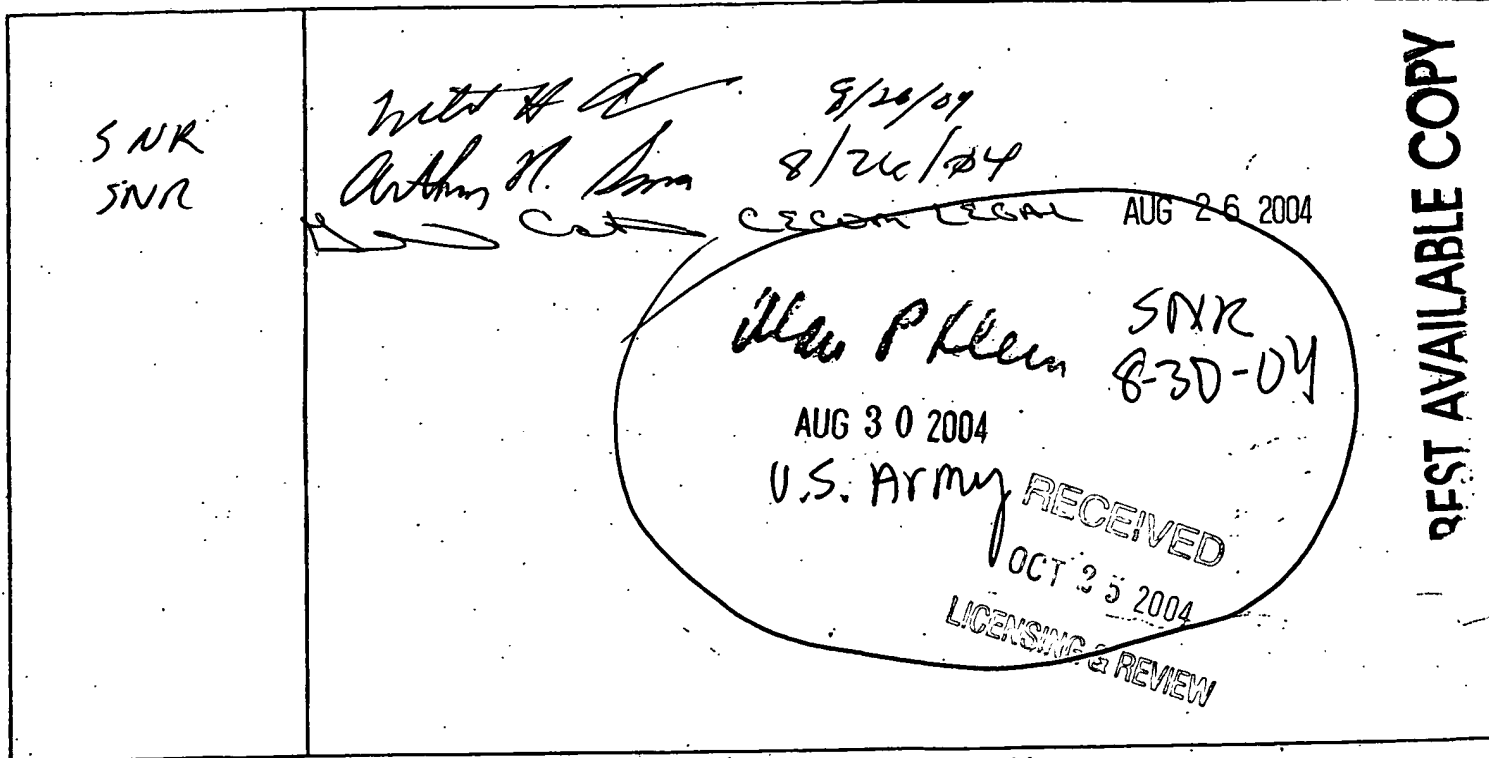 SNR 8/26/04
SNR Arthur H. 8/26/04
CECOM LEGAL AUG 26 2004
Alan P Klein SNR
8-30-04
AUG 30 2004
U.S. Army
RECEIVED
OCT 25 2004
LICENSING & REVIEW
BEST AVAILABLE COPY